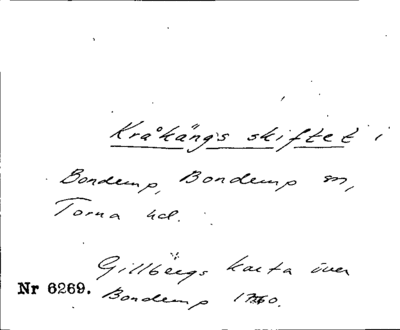 Kråkängs skiftet i
Bonderup, Bonderup sn,
Torna hd.
Gillbergs karta över
Nr 6269. Bonderup